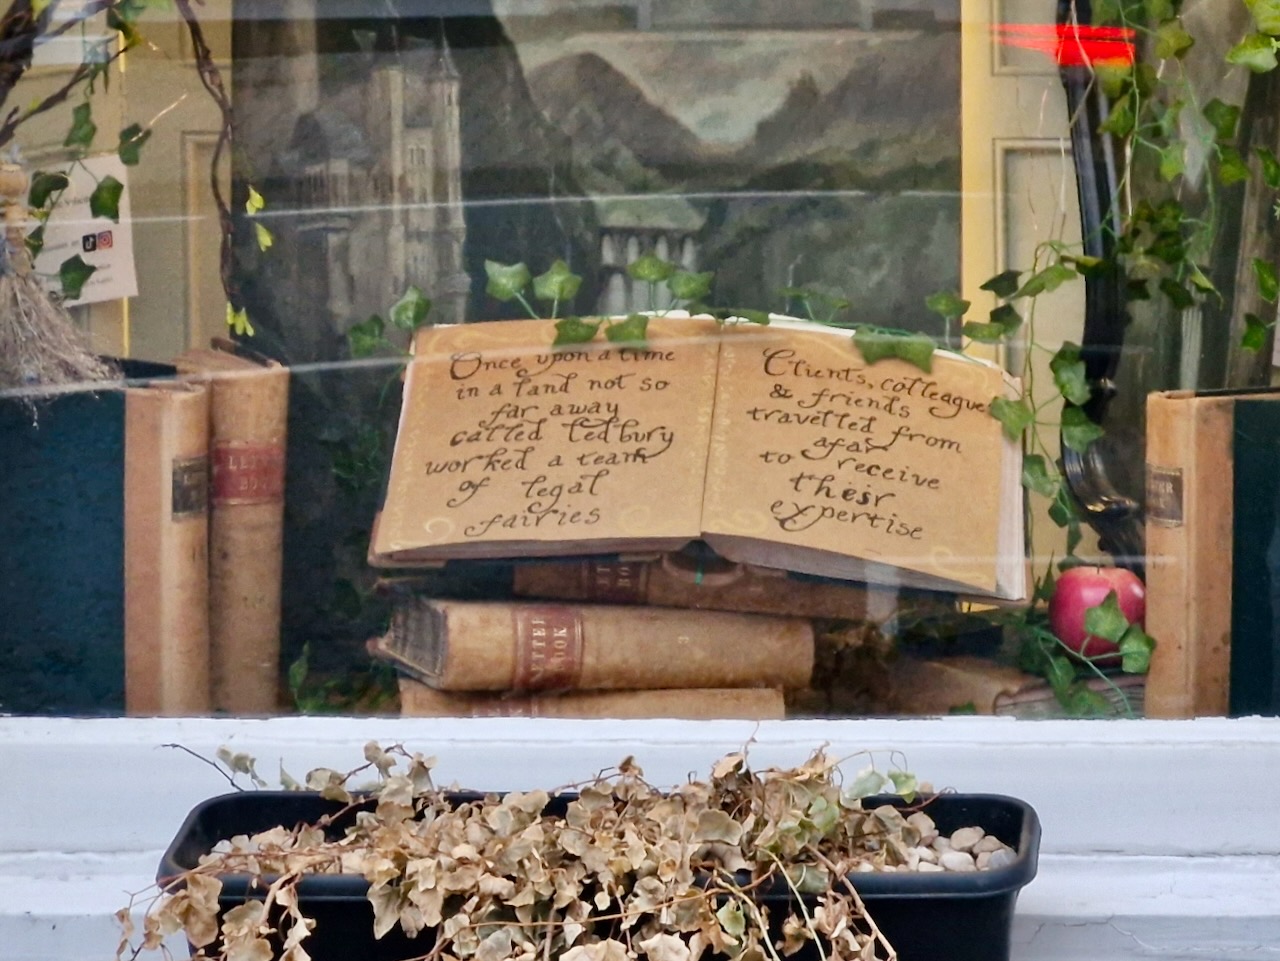 Once upon a time
in a land not so
far away
called Ledbury
worked a team
of legal
fairies
Clients, colleague
& friends
travelled from
afar
to receive
their
expertise
LETTER
BOOK
3